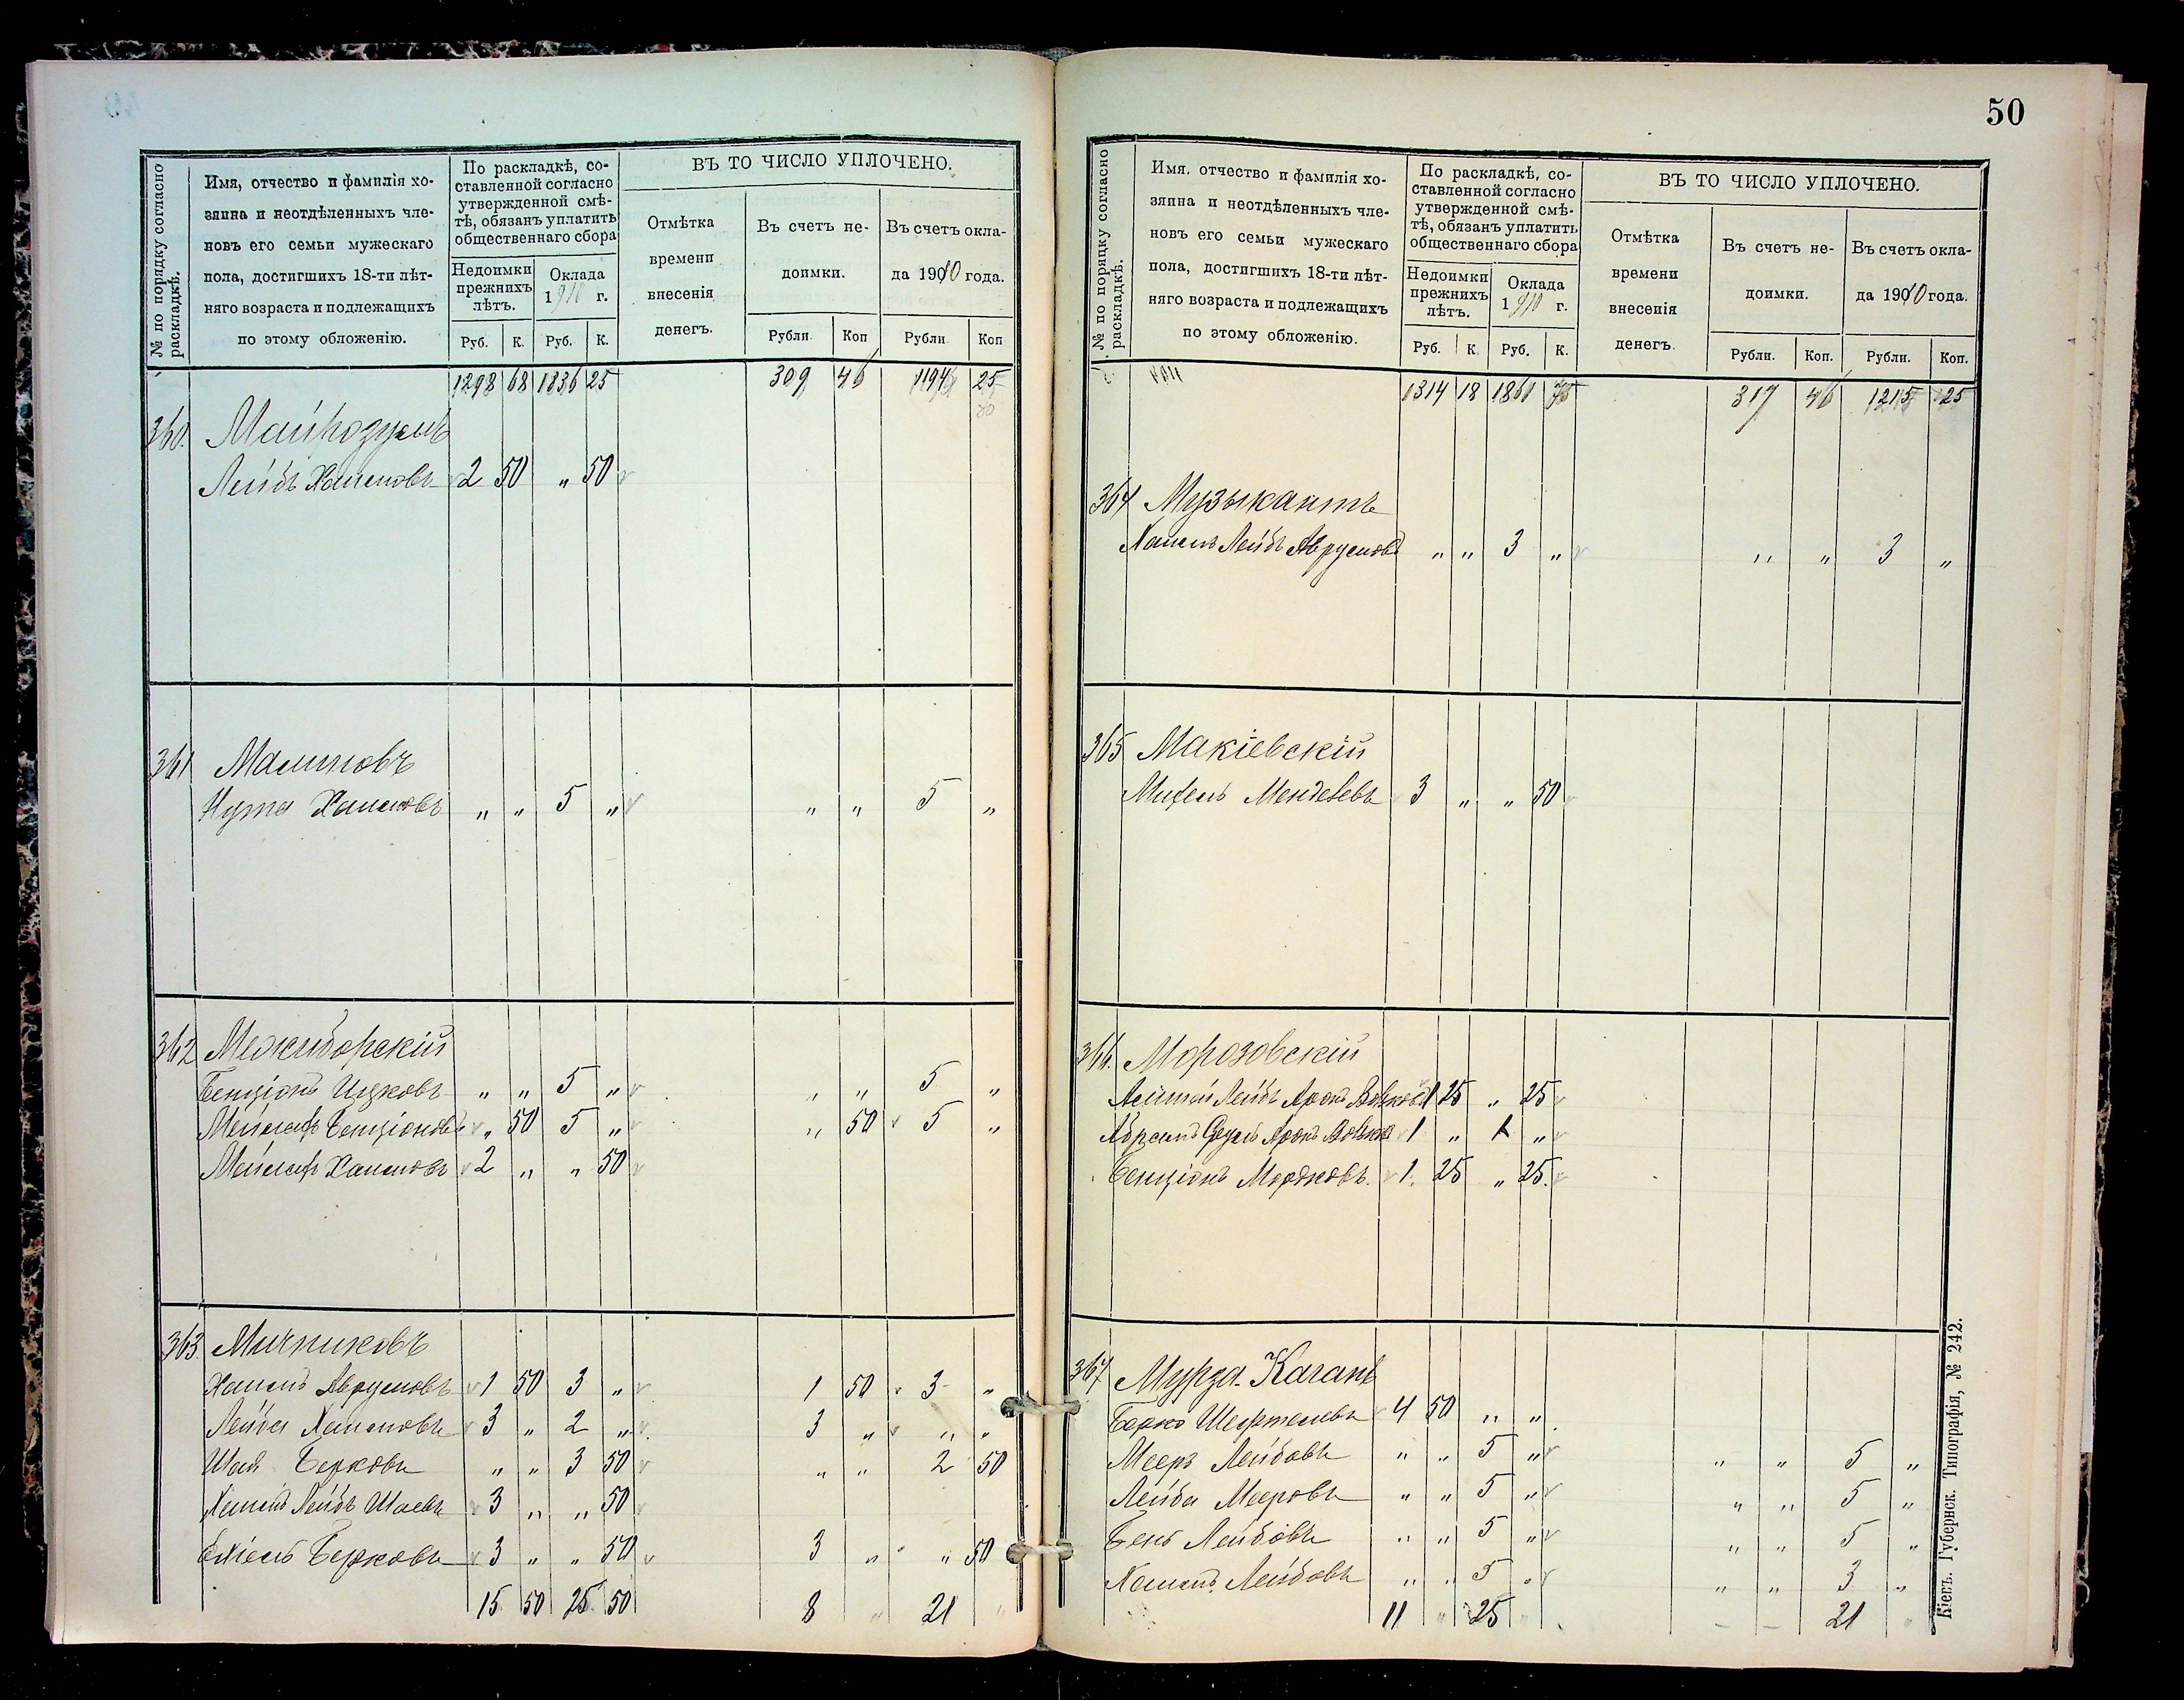 № по порядку согласно раскладкѣ.
Имя, отчество и фамилія хо-
зяина и неотдѣленныхъ чле-
новъ его семьи мужескаго
пола, достигшихъ 18-ти лѣт-
няго возраста и подлежащихъ
по этому обложенію.
По раскладкѣ, со-
ставленной согласно
утвержденной смѣ-
тѣ, обязанъ уплатить
общественнаго сбора
Недоимки прежнихъ лѣтъ.
Оклада 1910 г.
Руб. К. Руб. К.
ВЪ ТО ЧИСЛО УПЛОЧЕНО.
Отмѣтка
времени
внесенія
денегъ.
Въ счетъ не-
доимки.
Въ счетъ окла-
да 1910 года.
Рубли. Коп Рубли. Коп
1298 68 1836 25 309 46 1194 25
360. Майрозумъ
Лейбъ Хаимовъ 2 50 „ 50
361 Малиновъ
Нута Хаимовъ „ „ 5 „ „ „ 5 „
362 Межиборскій
Бенціонъ Ицковъ „ „ 5 „ „ „ 5 „
Меилахъ Бенціоновъ „ 50 5 „ „ 50 5 „
Меилахъ Хаимовъ 2 „ „ 50
363. Мичниковъ
Хаимъ Аврумовъ 1 50 3 „ 1 50 3 „
Лейба Хаимовъ 3 „ 2 „ 3 „ „ „
Шая Берковъ „ „ 3 50 „ „ 2 50
Хаимъ Лейбъ Шаевъ 3 „ „ 50
Ехіель Берковъ 3 „ „ 50 3 „ „ 50
15 50 25 50 8 „ 21 „
50
№ по порядку согласно раскладкѣ.
Имя, отчество и фамилія хо-
зяина и неотдѣленныхъ чле-
новъ его семьи мужескаго
пола, достигшихъ 18-ти лѣт-
няго возраста и подлежащихъ
по этому обложенію.
По раскладкѣ, со-
ставленной согласно
утвержденной смѣ-
тѣ, обязанъ уплатить
общественнаго сбора
Недоимки прежнихъ лѣтъ.
Оклада 1910 г.
Руб. К. Руб. К.
ВЪ ТО ЧИСЛО УПЛОЧЕНО.
Отмѣтка
времени
внесенія
денегъ.
Въ счетъ не-
доимки.
Въ счетъ окла-
да 1910 года.
Рубли. Коп. Рубли. Коп.
1314 18 1861 75 317 46 1215 25
364 Музыкантъ
Хаимъ Лейбъ Аврумовъ „ „ 3 „ „ „ 3 „
365 Макіевскій
Михель Менделевъ 3 „ „ 50
366. Морозовскій
Лейбъ Аронъ Вовковъ 1 25 „ 25
Абрамъ Аронъ Вовковъ 1 „ 1 „
Бенціонъ Мордковъ 1. 25 „ 25.
367 Мурза-Каганъ
Берко Шефтелевъ 4 50 „ „
Мееръ Лейбовъ „ „ 5 „ „ „ 5 „
Лейба Мееровъ „ „ 5 „ „ „ 5 „
Бенъ Лейбовъ „ „ 5 „ „ „ 5 „
Хаимъ Лейбовъ „ „ 5 „ „ „ 3 „
11 „ 25 „ – – 21 „
Кіевъ. Губернск. Типографія, № 242.